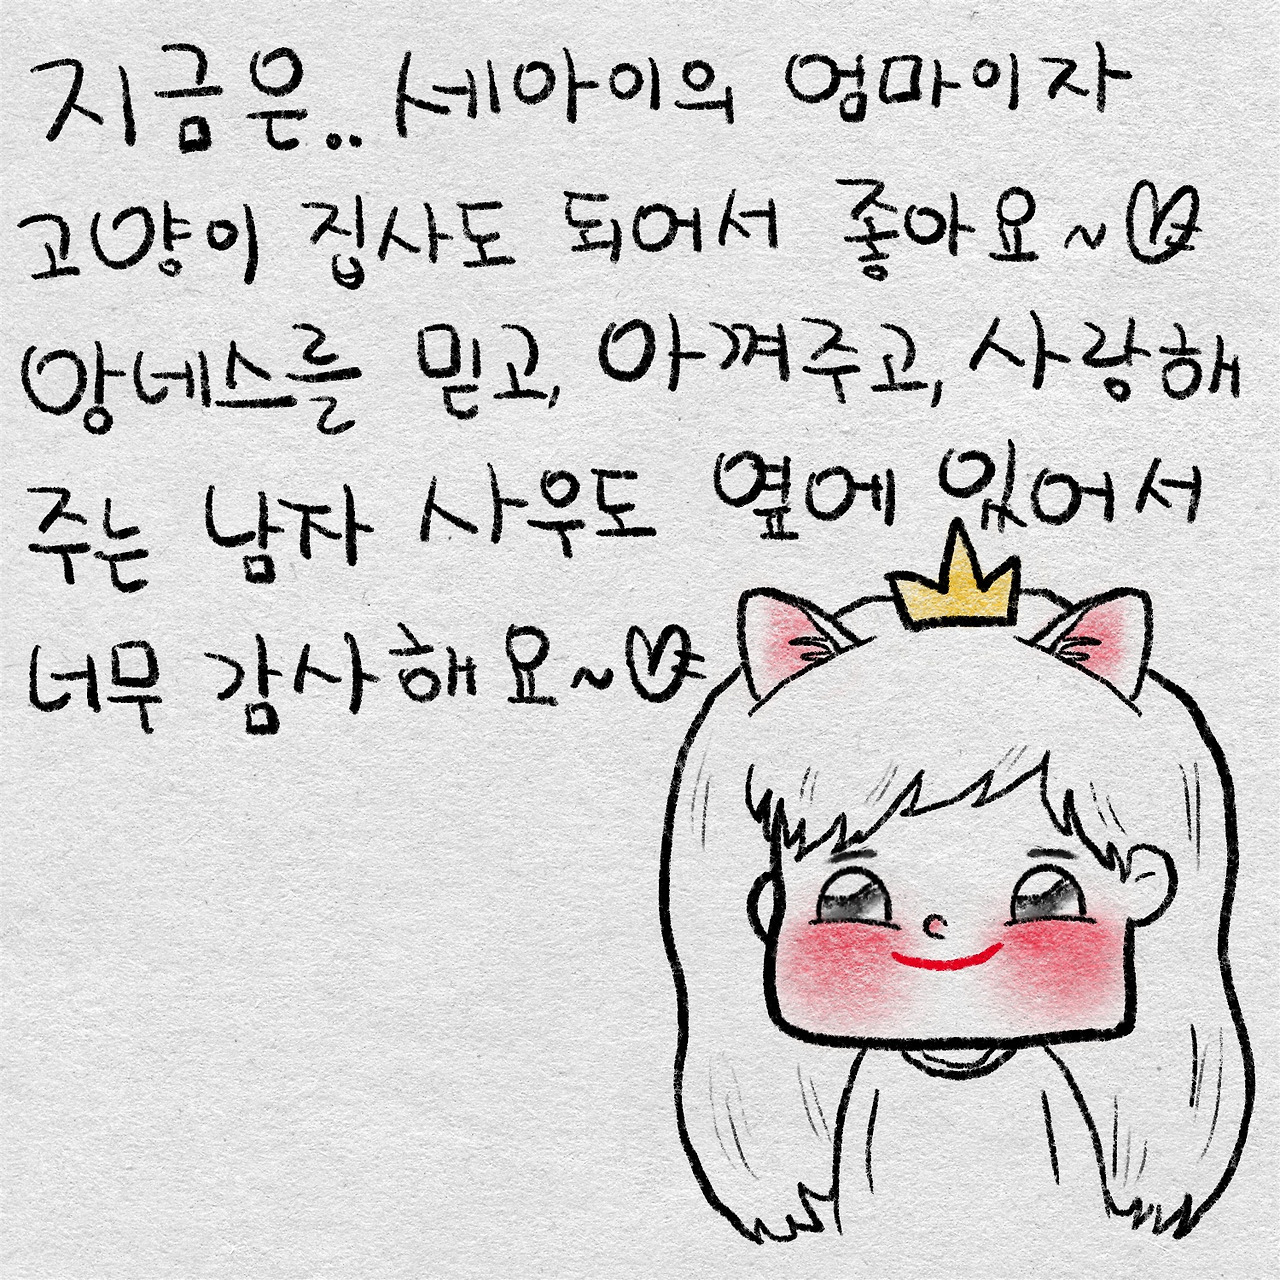 지금은.. 세아이의 엄마이자
고양이 집사도 되어서 좋아요~♡
앙네스를 믿고, 아껴주고, 사랑해
주는 남자 사우도 옆에 있어서
너무 감사해요~♡